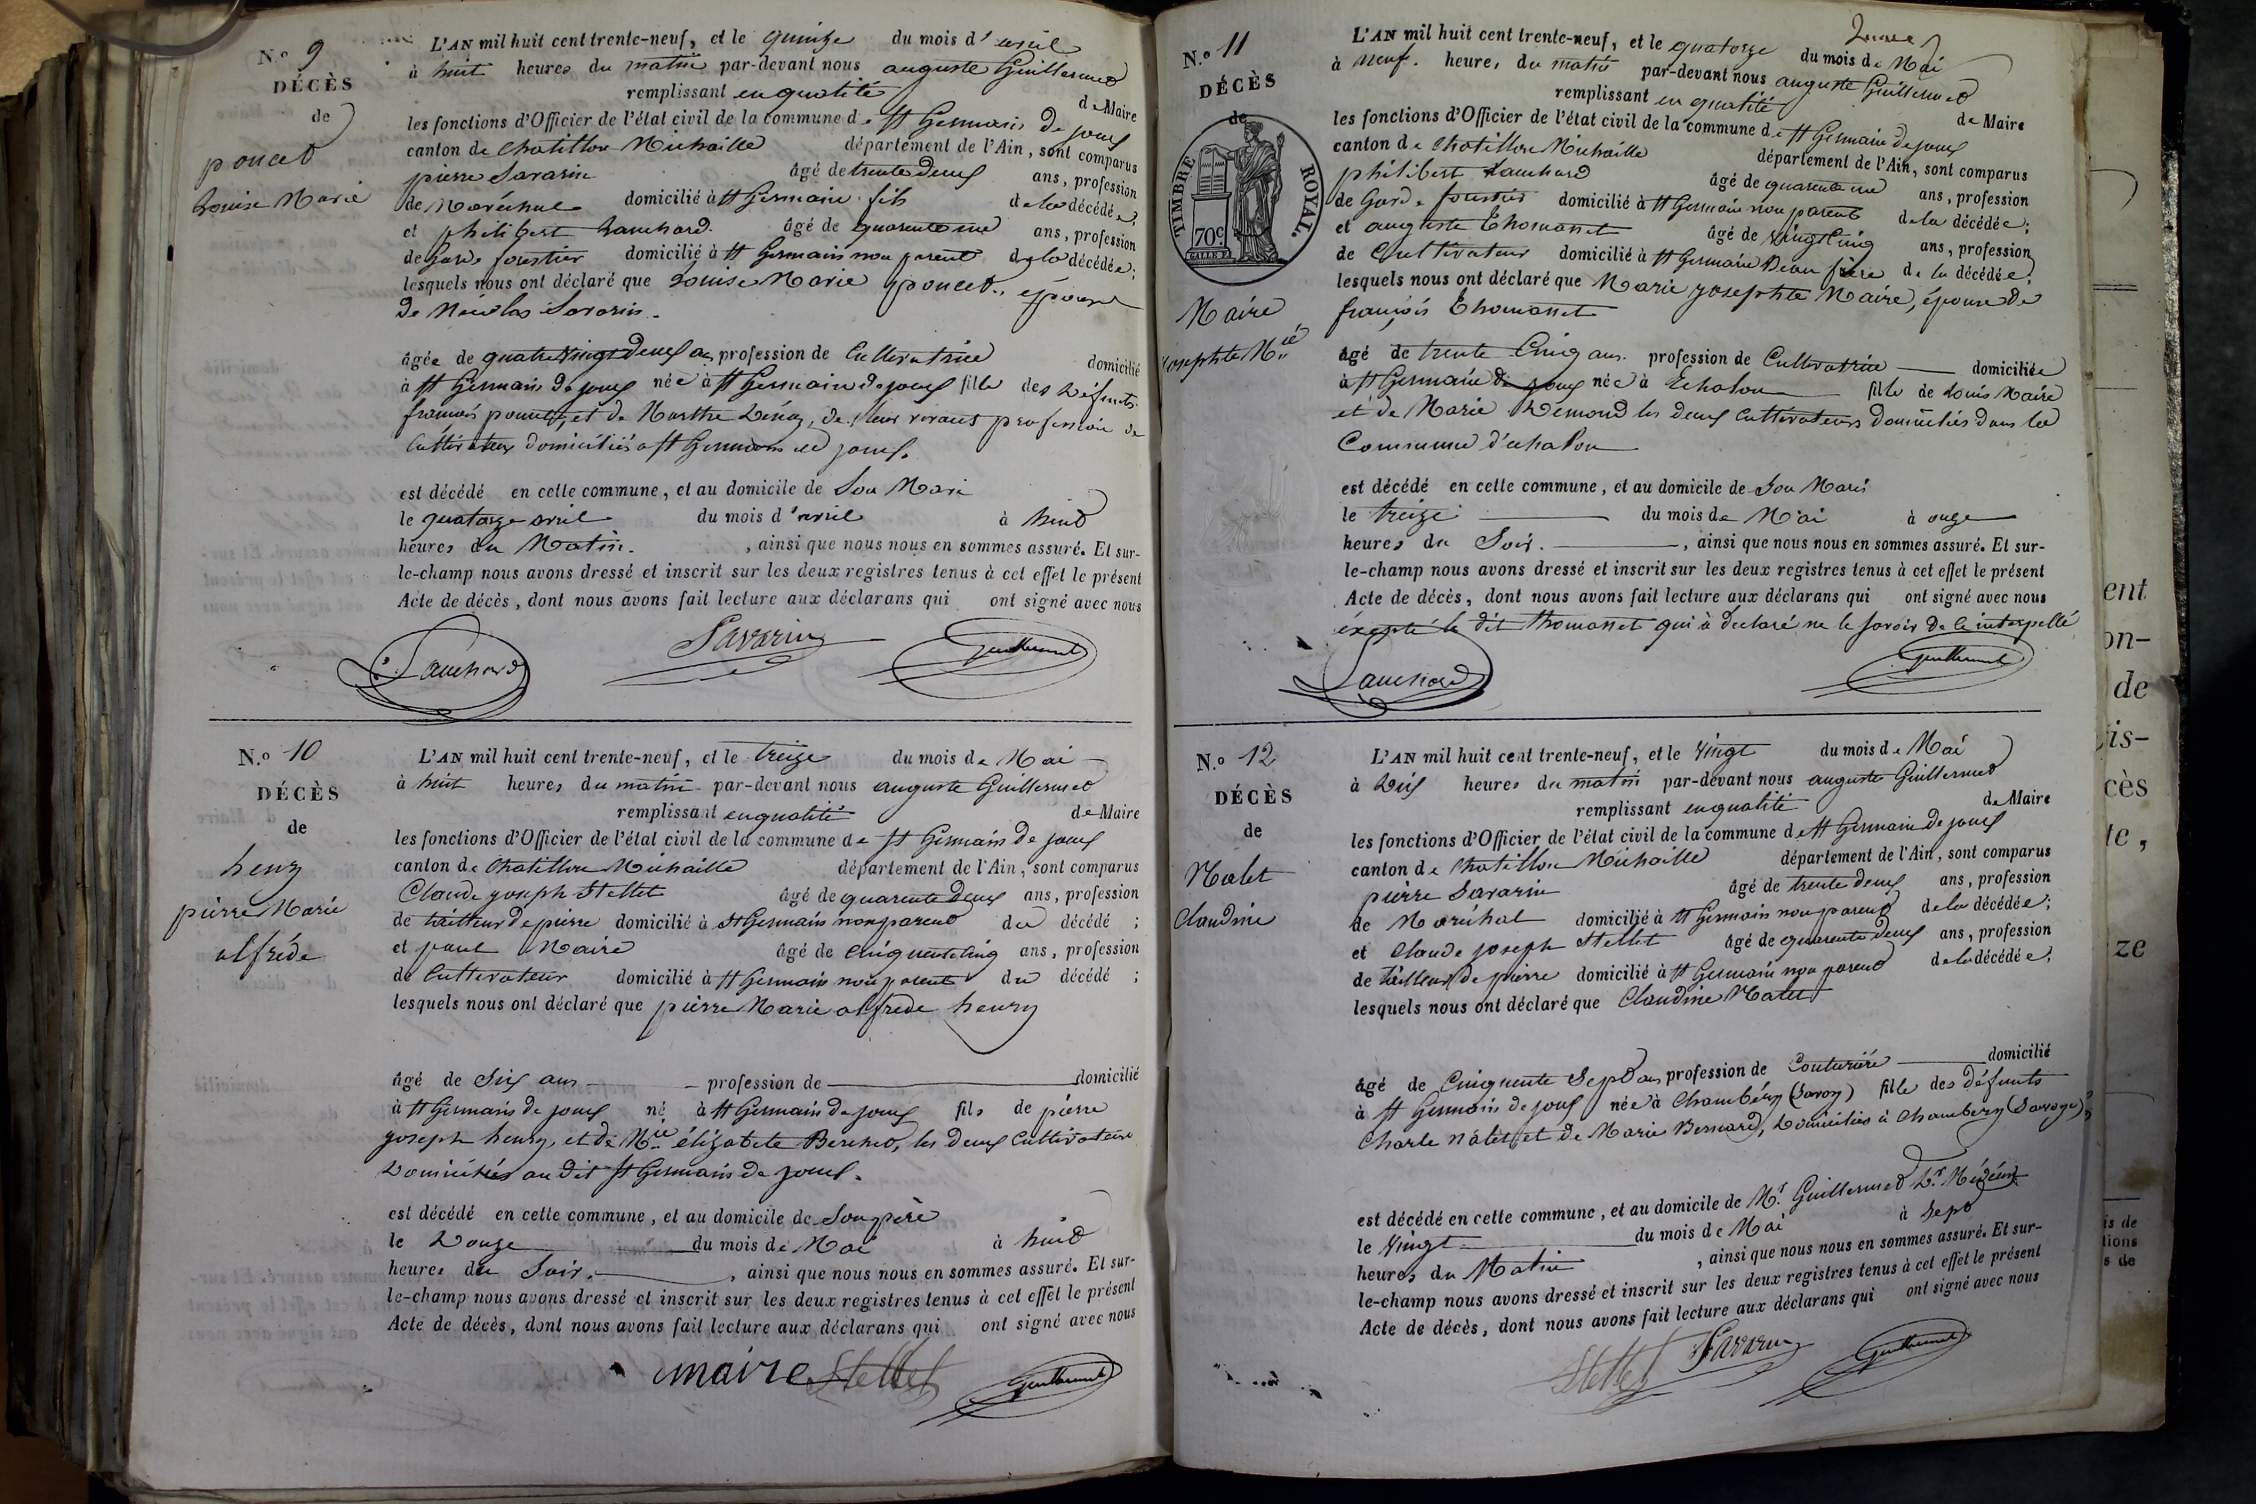 N.º 9
DÉCÈS
de
poncet
Louise Marie
L'AN mil huit cent trente-neuf, et le quinze du mois d'avril
à huit heures du matin par-devant nous auguste Guillermet
remplissant en qualité de Maire
les fonctions d'Officier de l'état civil de la commune de St Germain de joux
canton de Chatillon Michaille département de l'Ain, sont comparus
pierre Savarin âgé de trente deux ans, profession
de Maréchal domicilié à St Germain fils de la décédée;
et philibert Lanchard âgé de quarente un ans, profession
de Garde forestier domicilié à St Germain non parent de la décédée;
lesquels nous ont déclaré que Louise Marie poncet, épouse
de Nicolas Savarin.
âgée de quatre vingt deux ans profession de Cultivatrice domicilié
à St Germain de joux née à St Germain de joux fille des défunts
françois poncet, et de Marthe, de leur vivant profession de
Cultivateurs domiciliés à St Germain de joux.
est décédé en cette commune, et au domicile de Son Mari
le quatorze avril du mois d'avril à huit
heures du Matin. , ainsi que nous nous en sommes assuré. Et sur-
le-champ nous avons dressé et inscrit sur les deux registres tenus à cet effet le présent
Acte de décès, dont nous avons fait lecture aux déclarans qui ont signé avec nous
Lanchard Savarin Guillermet
N.º 10
DÉCÈS
de
henry
pierre Marie
alfréde
L'AN mil huit cent trente-neuf, et le treize du mois de Mai
à huit heures du matin par-devant nous auguste Guillermet
remplissant en qualité de Maire
les fonctions d'Officier de l'état civil de la commune de St Germain de joux
canton de Chatillon Michaille département de l'Ain, sont comparus
Claude joseph Stellet âgé de quarente deux ans, profession
de tailleur de pierre domicilié à St Germain non parent du décédé;
et paul Maire âgé de Cinquente Cinq ans, profession
de Cultivateur domicilié à St Germain non parent du décédé;
lesquels nous ont déclaré que pierre Marie alfrede henry
âgé de Six ans profession de domicilié
à St Germain de joux né à St Germain de joux fils de pierre
joseph henry, et de Mie élizabete, les deux Cultivateurs
Domiciliés au dit St Germain de joux.
est décédé en cette commune, et au domicile de Son père
le Douze du mois de Mai à huit
heures du Soir. , ainsi que nous nous en sommes assuré. Et sur-
le-champ nous avons dressé et inscrit sur les deux registres tenus à cet effet le présent
Acte de décès, dont nous avons fait lecture aux déclarans qui ont signé avec nous
maire Stellet Guillermet
N.º 11
DÉCÈS
de
TIMBRE ROYAL.
70c
Maire
josephte Mie
L'AN mil huit cent trente-neuf, et le quatorze du mois de Mai
à neuf. heures du matin par-devant nous auguste Guillermet
remplissant en qualité de Maire
les fonctions d'Officier de l'état civil de la commune de St Germain de joux
canton de Chatillon Michaille département de l'Ain, sont comparus
philibert Lanchard âgé de quarente un ans, profession
de Garde forestier domicilié à St Germain non parent de la décédée;
et auguste Thomasset âgé de vingt Cinq ans, profession
de Cultivateur domicilié à St Germain Beau frère de la décédée;
lesquels nous ont déclaré que Marie josephte Maire, épouse de
françois Thomasset
âgé de trente Cinq ans. profession de Cultivatrice domiciliée
à St Germain de joux née à Echalon fille de Louis Maire
et de Marie Demond les deux Cultivateurs domiciliés dans la
Commune d'echalon
est décédé en cette commune, et au domicile de Son Mari
le treize du mois de Mai à onze
heures du Soir. , ainsi que nous nous en sommes assuré. Et sur-
le-champ nous avons dressé et inscrit sur les deux registres tenus à cet effet le présent
Acte de décès, dont nous avons fait lecture aux déclarans qui ont signé avec nous
éxepté le dit thomasset qui à déclaré ne le savoir de ce interpellé
Lanchard Guillermet
N.º 12
DÉCÈS
de
Nalet
Claudine
L'AN mil huit cent trente-neuf, et le Vingt du mois de Mai
à Dix heures du matin par-devant nous auguste Guillermet
remplissant en qualité de Maire
les fonctions d'Officier de l'état civil de la commune de St Germain de joux
canton de Chatillon Michaille département de l'Ain, sont comparus
pierre Savarin âgé de trente deux ans, profession
de Maréchal domicilié à St Germain non parent de la décédée;
et Claude joseph Stellet âgé de quarente deux ans, profession
de tailleur de pierre domicilié à St Germain non parent de la décédée;
lesquels nous ont déclaré que Claudine Nalet
âgé de Cinquente Sept ans profession de Couturière domicilié
à St Germain de joux née à Chambéry (Savoy) fille des défunts
Charle Nalet et de Marie Bernard, Domiciliés à Chambery (Savoye)
est décédé en cette commune, et au domicile de Mr Guillermet Dr Médecin
le Vingt du mois de Mai à Sept
heures du Matin , ainsi que nous nous en sommes assuré. Et sur-
le-champ nous avons dressé et inscrit sur les deux registres tenus à cet effet le présent
Acte de décès, dont nous avons fait lecture aux déclarans qui ont signé avec nous
Stellet Savarin Guillermet